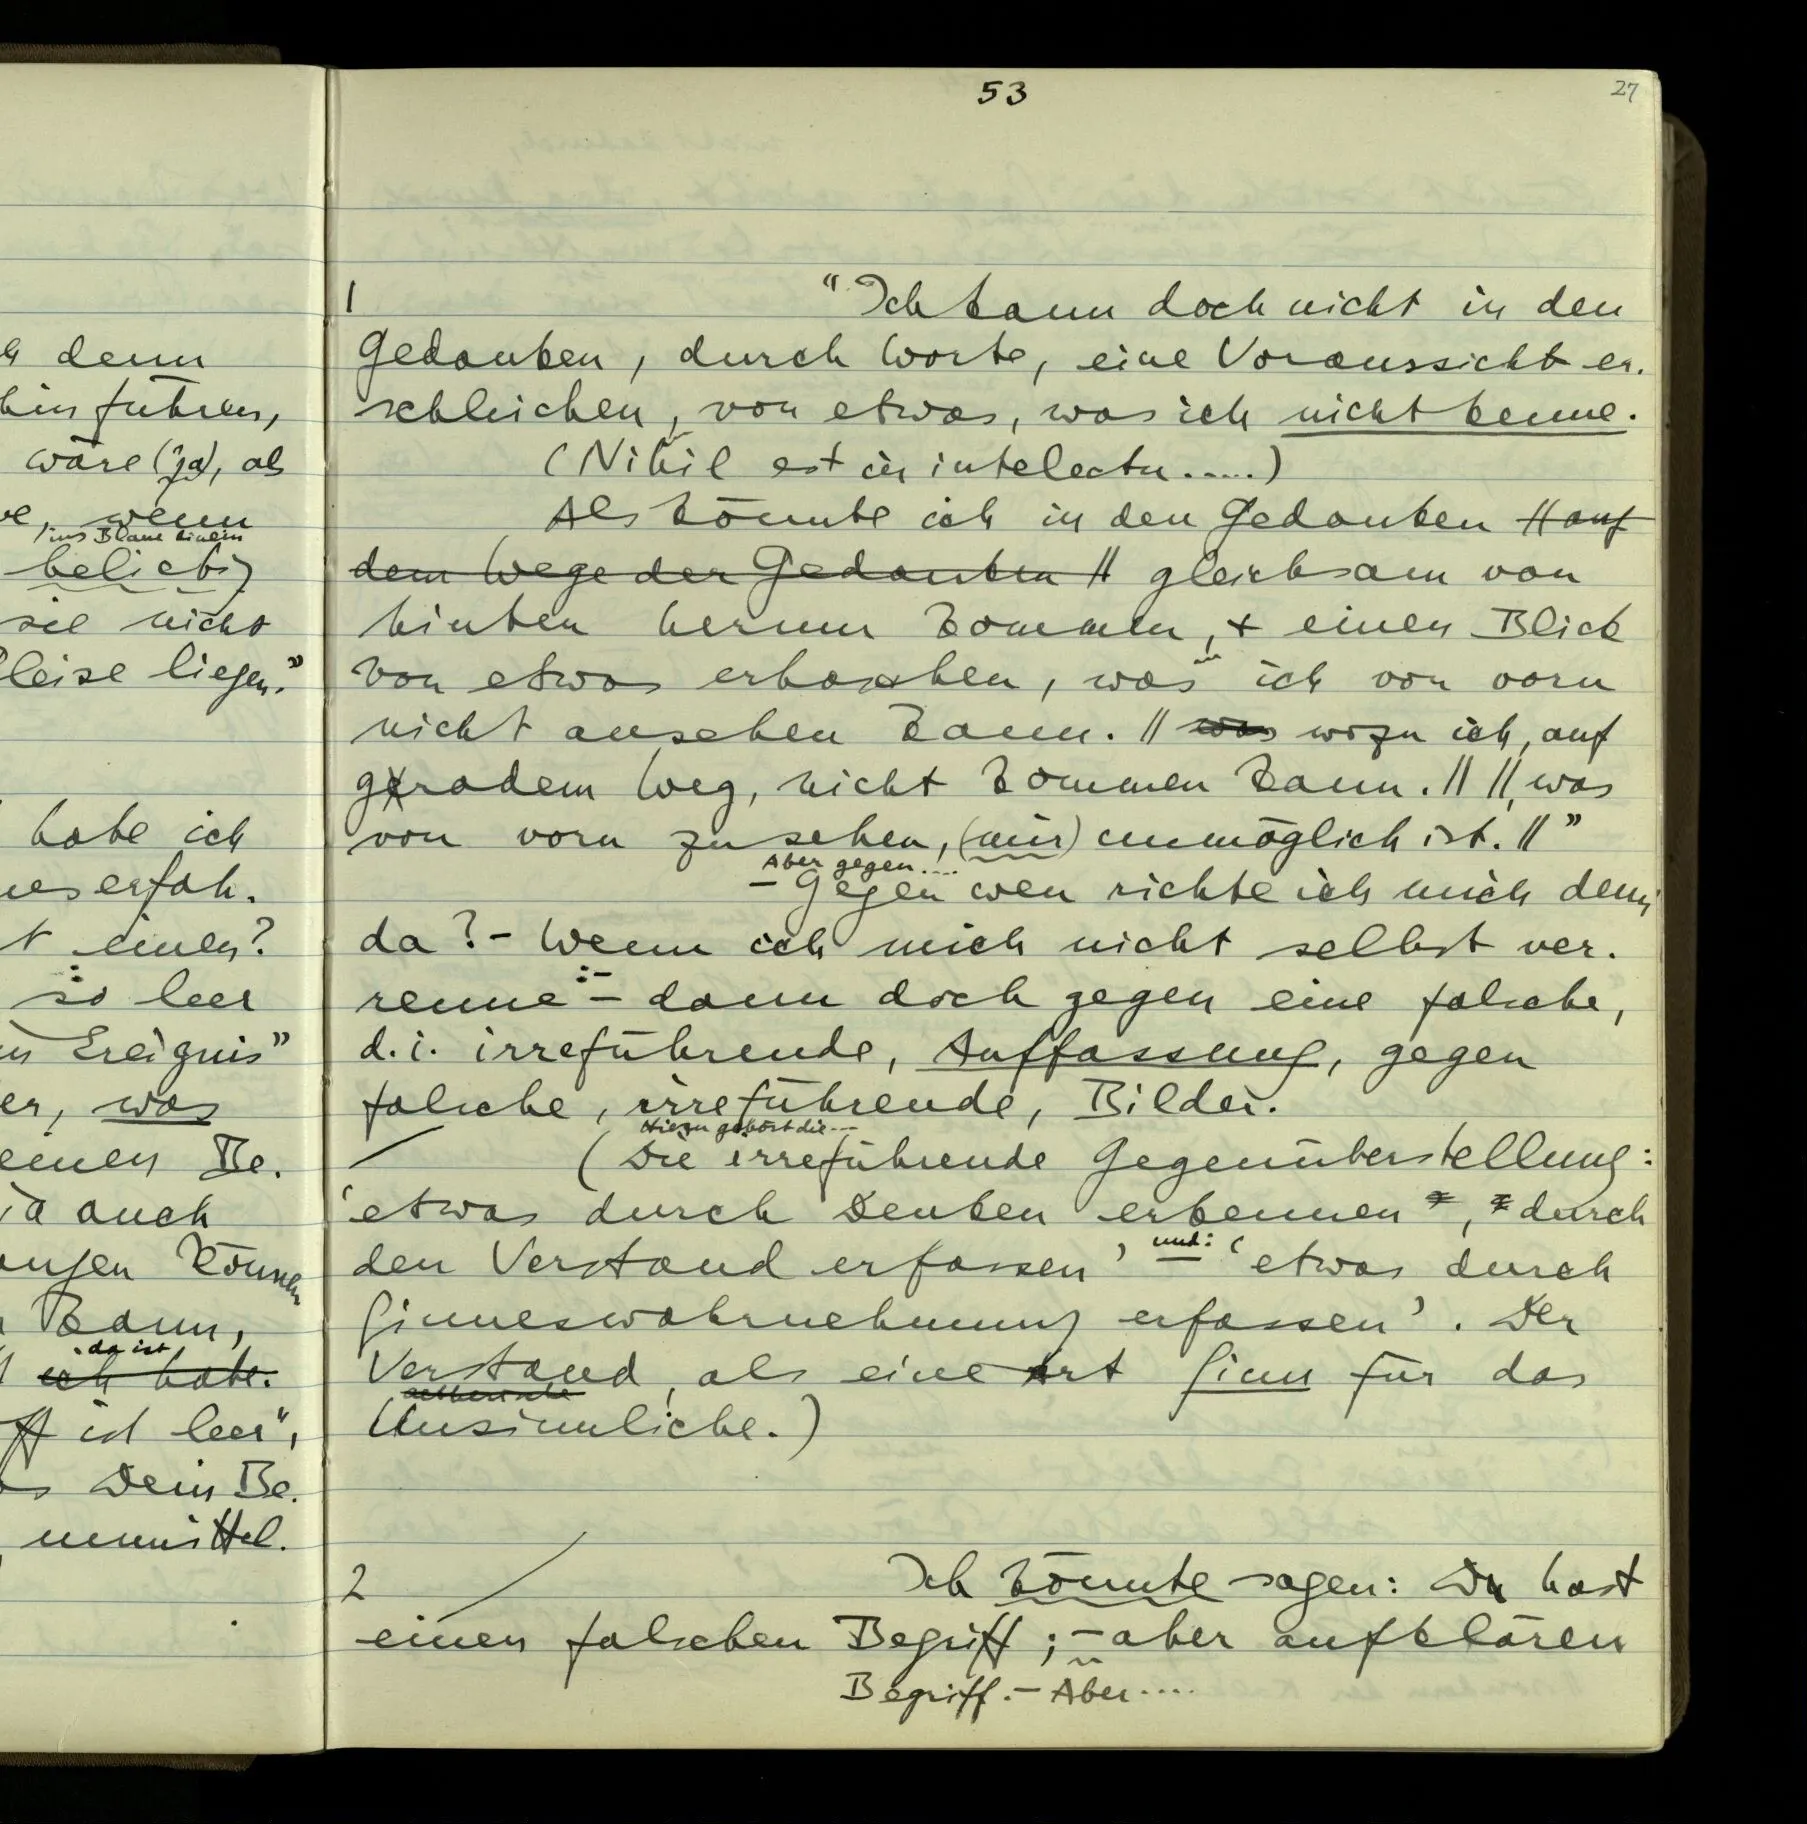 53
27
h denn
hinführen,
wäre (ja), als
ve, wenn
ins Blaue hinein
beliebig
sie nicht
leise liegen."
habe ich
nes erfah-
t einen?
so leer
in Ereignis"
er, was
einen Be-
ja auch
angen könne
kann,
da ist
ich habe.
ff ist leer",
s Dein Be-
unmittel-
1 "Ich kann doch nicht in den
Gedanken, durch Worte, eine Voraussicht er-
schleichen, von etwas, was ich nicht kenne.
(Nihil est in intelectu.....)
Als könnte ich in den Gedanken // auf
dem Wege der Gedanken // gleichsam von
hinten herum kommen, + einen Blick
von etwas erhaschen, was ich von vorn
nicht ansehen kann. // was wozu ich, auf
geradem Weg, nicht kommen kann. // //, was
von vorn zu sehen, (mir) unmöglich ist. //"
Aber gegen....
– Gegen wen richte ich mich denn
da? – Wenn ich mich nicht selbst ver-
renne :– dann doch gegen eine falsche,
d.i. irreführende, Auffassung, gegen
falsche, irreführende, Bilder.
Hiezu gehört die...
(Die irreführende Gegenüberstellung:
'etwas durch Denken erkennen, durch
den Verstand erfassen' und: 'etwas durch
Sinneswahrnehmung erfassen'. Der
Verstand, als eine Art Sinn für das
aetherische
Unsinnliche.)
2 Ich könnte sagen: Du hast
einen falschen Begriff; – aber aufklären
Begriff. – Aber....